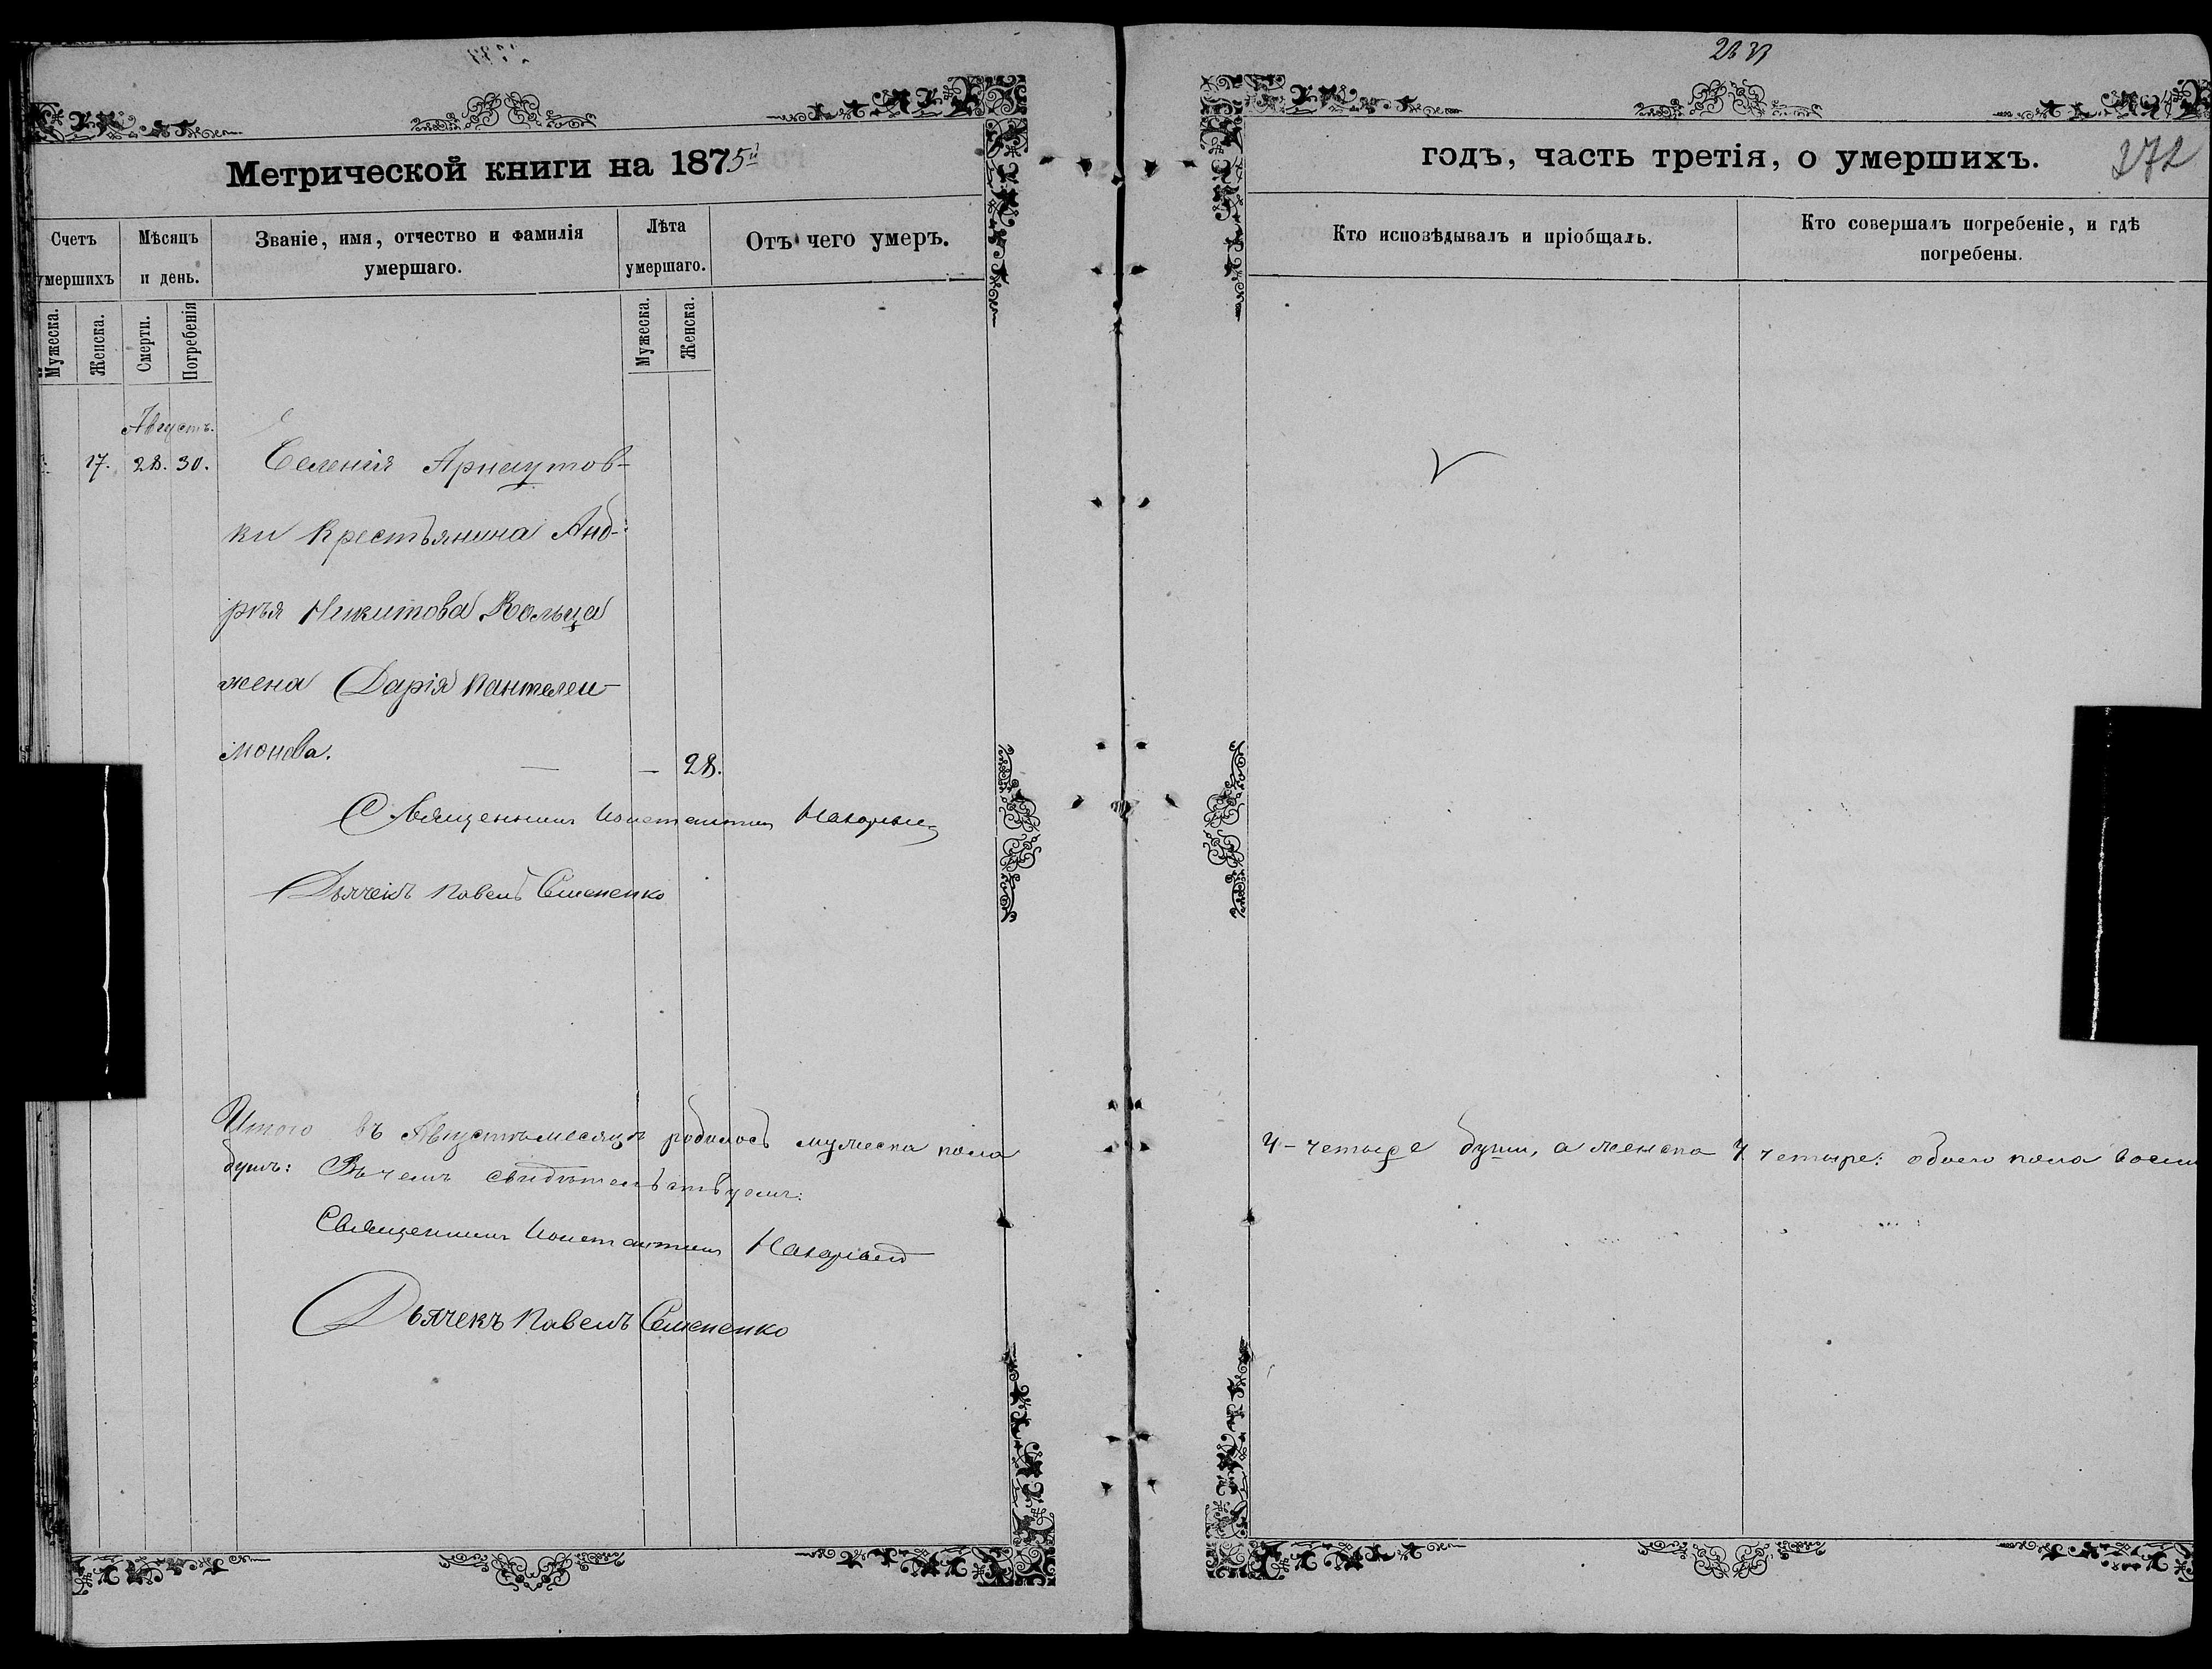 Метрической книги на 1875й
годъ, часть третія, о умершихъ.
272
Счетъ умершихъ
Мѣсяцъ и день.
Званіе, имя, отчество и фамилія умершаго.
Лѣта умершаго.
Отъ чего умеръ.
Кто исповѣдывалъ и пріобщалъ.
Кто совершалъ погребеніе, и гдѣ погребены.
Мужеска.
Женска.
Смерти.
Погребенія
Мужеска.
Женска.
Августъ.
17. 28. 30. Селенія Арнаутов-
ки крестьянина Анд-
рѣя Никитова Кольца
жена Дарія Пантелеи-
монова. — — 28.
Священникъ Константинъ
Дьячекъ Павелъ Семененко
Итого въ Августѣ месяцѣ родилось мужеска пола 4 - четыре души, а женска 4 четыре: обоего пола восемь
душъ: Въ чемъ свидѣтельствуемъ:
Священникъ Константинъ
Дьячекъ Павелъ Семененко